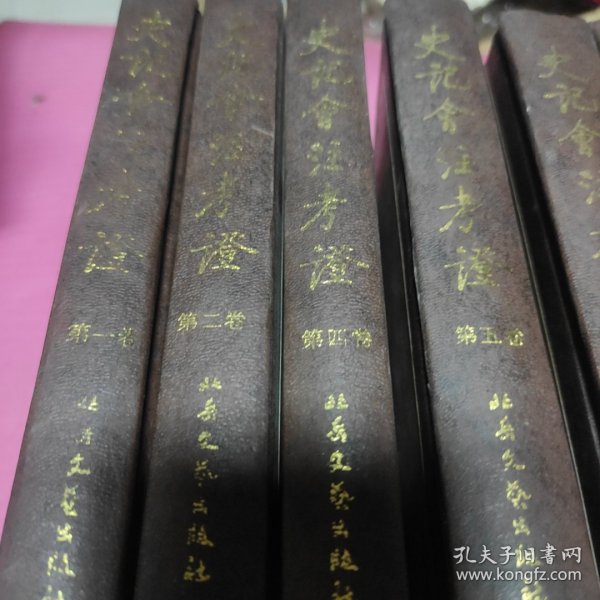 史記會注考證
第一卷
北岳文藝出版社
史記會注考證
第二卷
北岳文藝出版社
史記會注考證
第四卷
北岳文藝出版社
史記會注考證
第五卷
北岳文藝出版社
史記會注
孔夫子旧書网
www.kongfz.com